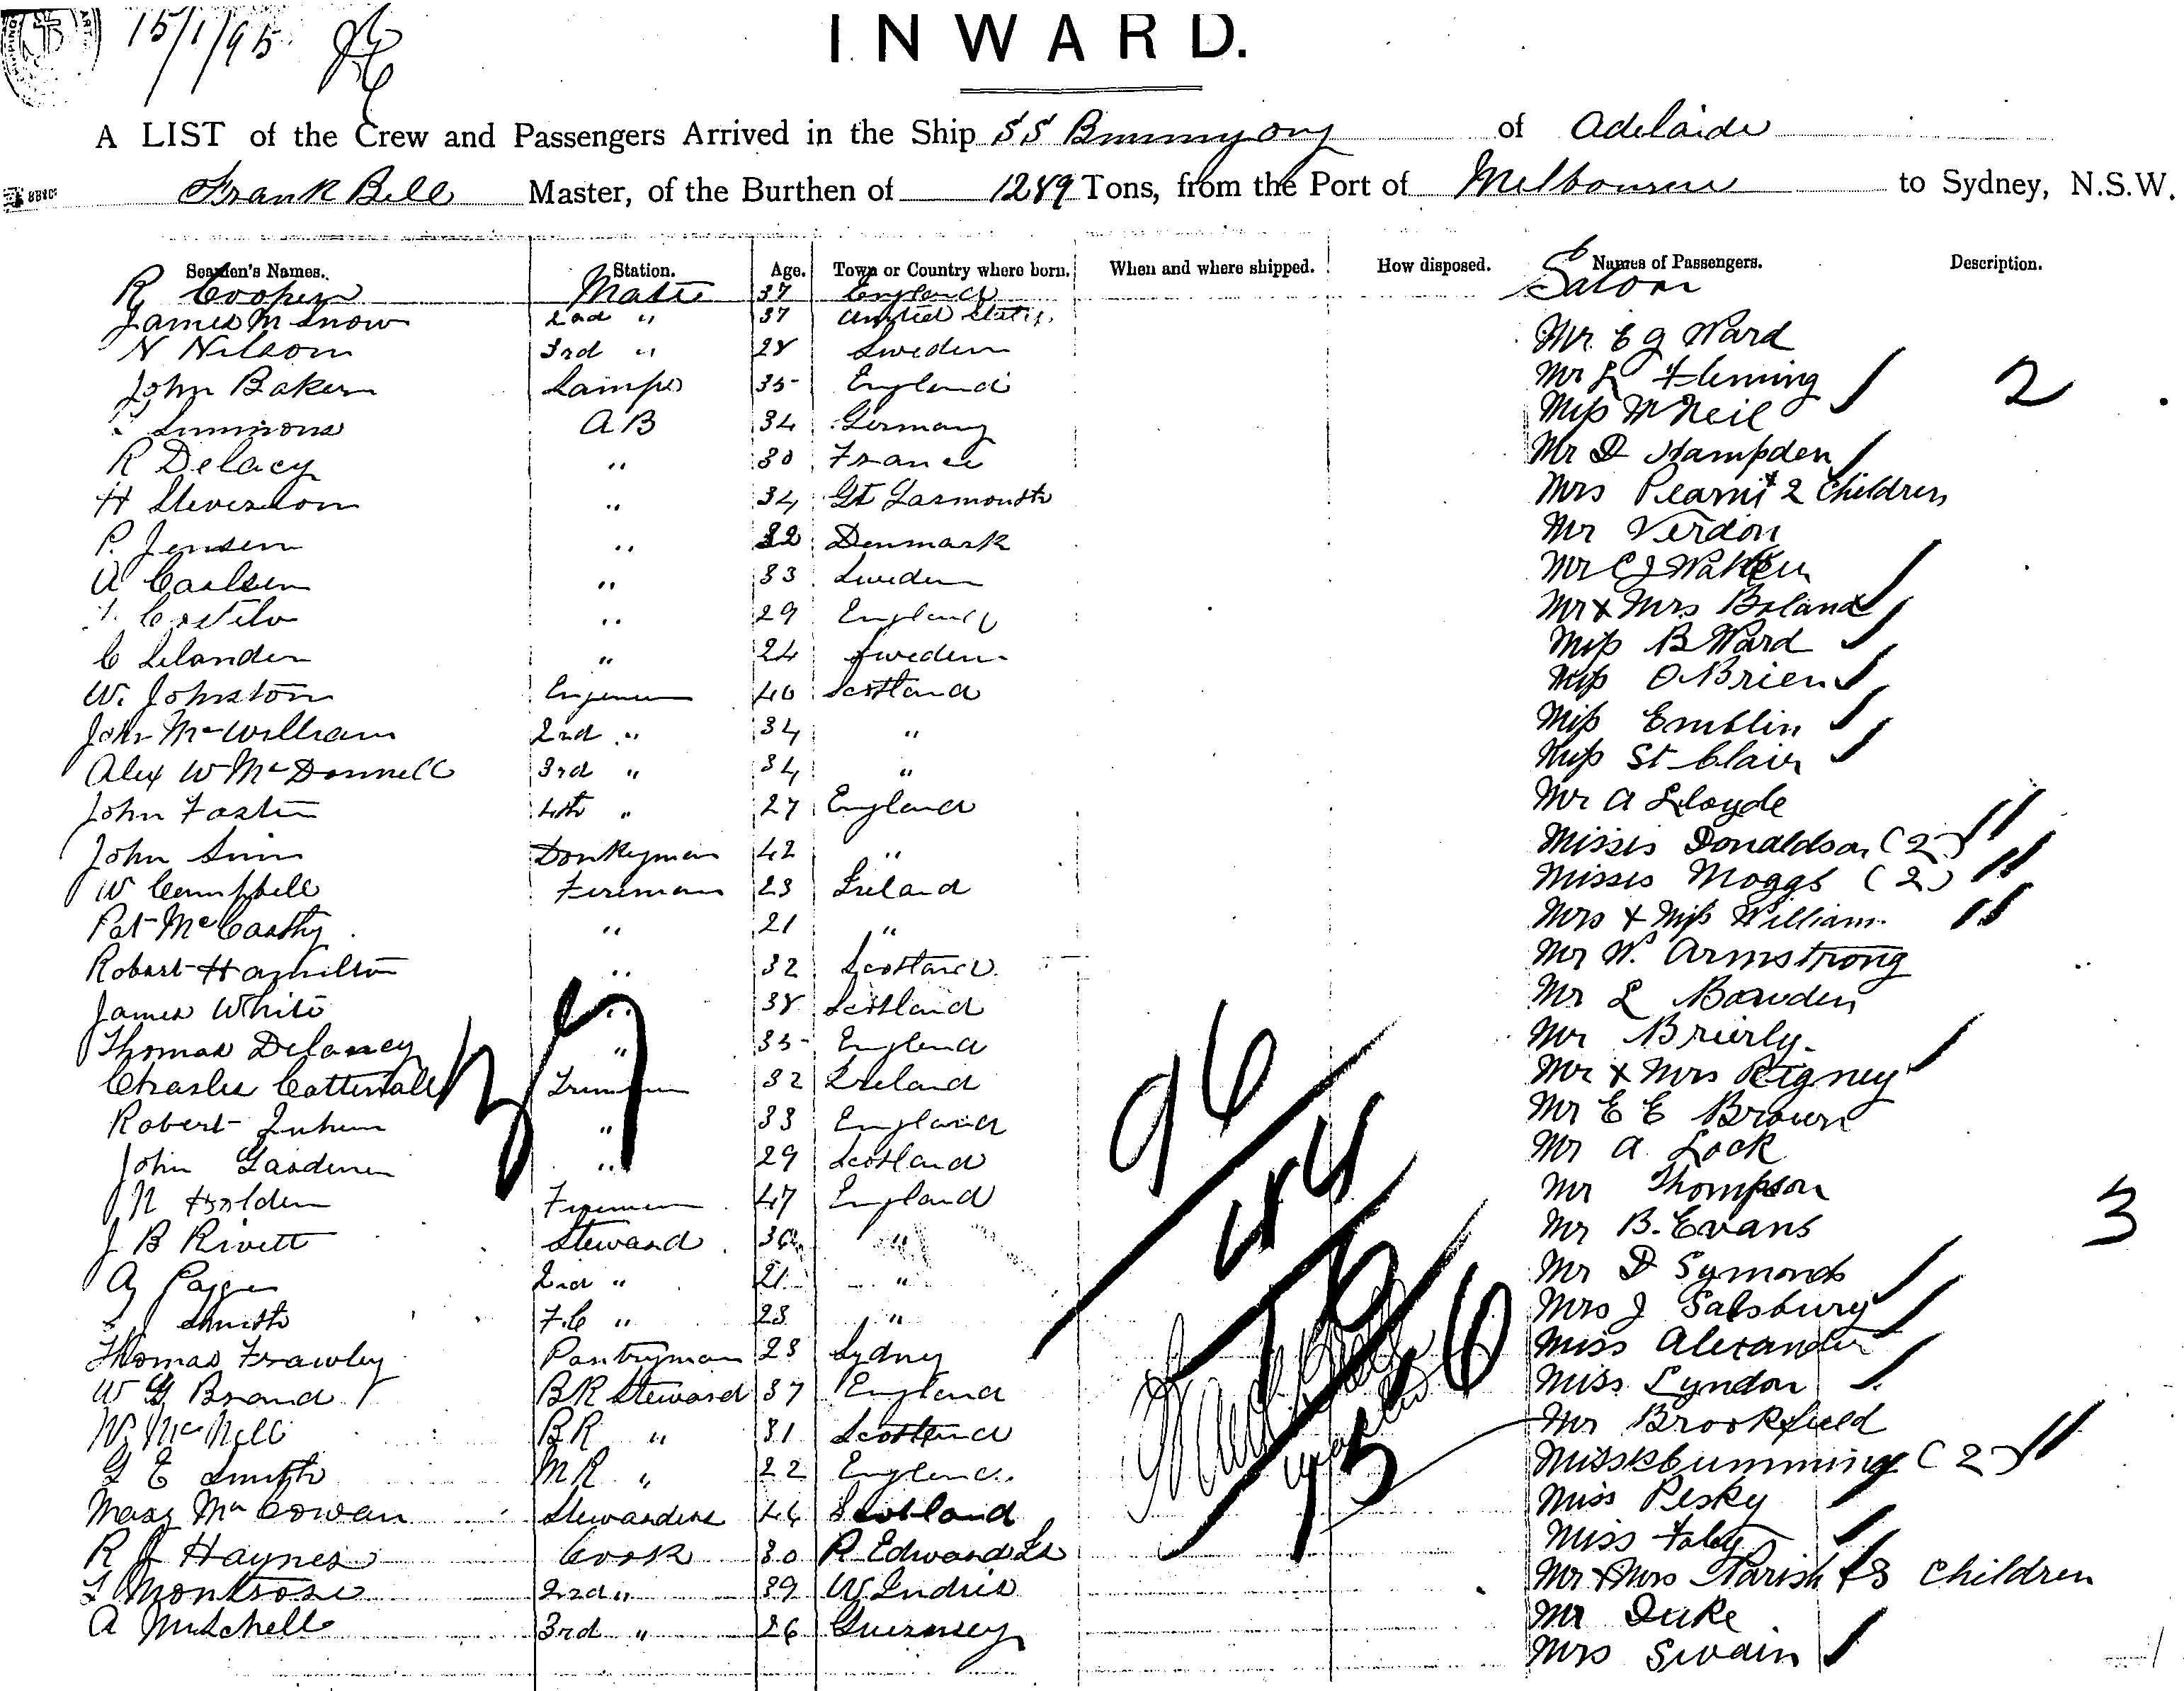 15/1/95
INWARD.
A LIST of the Crew and Passengers Arrived in the Ship SS Bunninyong of Adelaide
Frank Bell Master, of the Burthen of 1289 Tons, from the Port of Melbourne to Sydney, N.S.W.
Seamen's Names. Station. Age. Town or Country where born. When and where shipped. How disposed. Names of Passengers. Description.
R Cooper Mate 37 England Saloon
James M Snow 2nd " 37 United States
Mr E G Ward
N Nilsom 3rd " 28 Sweden
Mr L Fleming 2
John Baker Lamps 35 England
Miss McNeil
Simmons AB 34 Germany
Mr D Hampden
R Delacy " 30 France
Mrs Pearni & 2 Children
H Stevenson " 34 Gt Yarmouth
Mr Verdon
P. Jensen " 32 Denmark
Mr C J Walker
A Carlsen " 33 Sweden
Mr & Mrs Boland
Costelo " 29 England
Miss B Ward
C Selander " 24 Sweden
Miss O'Brien
W. Johnston Engineer 40 Scotland
Miss Emblin
John McWilliam 2nd " 34 "
Miss St Clair
Alex W McDonnell 3rd " 34 "
Mr A Lloyde
John Foster 4th " 27 England
Misses Donaldson (2)
John Sim Donkeyman 42 "
Misses Moggs (2)
W Campbell Fireman 23 Ireland
Mrs & Miss William
Pat McCarthy " 21 "
Mr W. Armstrong
Robert Hamilton " 32 Scotland
Mr L Bowden
James White " 38 Scotland
Mr Brierly
Thomas Delaney " 35 England
Mr & Mrs Rigney
Charles Cattermale Trimmer 32 Ireland
Mr E E Brown
Robert " 33 England
Mr A. Lock
John Gardener " 29 Scotland
Mr Thompson
N Holden Fireman 47 England
Mr B. Evans 3
J B Rivett Steward 36 "
Mr D Symonds
2nd " 21 "
Mrs J Salsbury
Smith F.C " 23 "
Miss Alexander
Thomas Frawley Pantryman 28 Sydney
Miss Lyndon
W G Brand BR Steward 37 England
Mr Brookfield
W McNell BR " 31 Scotland
Misses Cumming (2)
G E Smith MR " 22 England
Miss Pesky
Mary McCowan Stewardess 46 Scotland
Miss Foley
R J Haynes Cook 30 P Edward Is
Mr & Mrs Parish & 3 Children
Montrose 2nd " 39 W Indies
Mr Duke
A Mitchell 3rd " 26 Guernsey
Mrs Swain